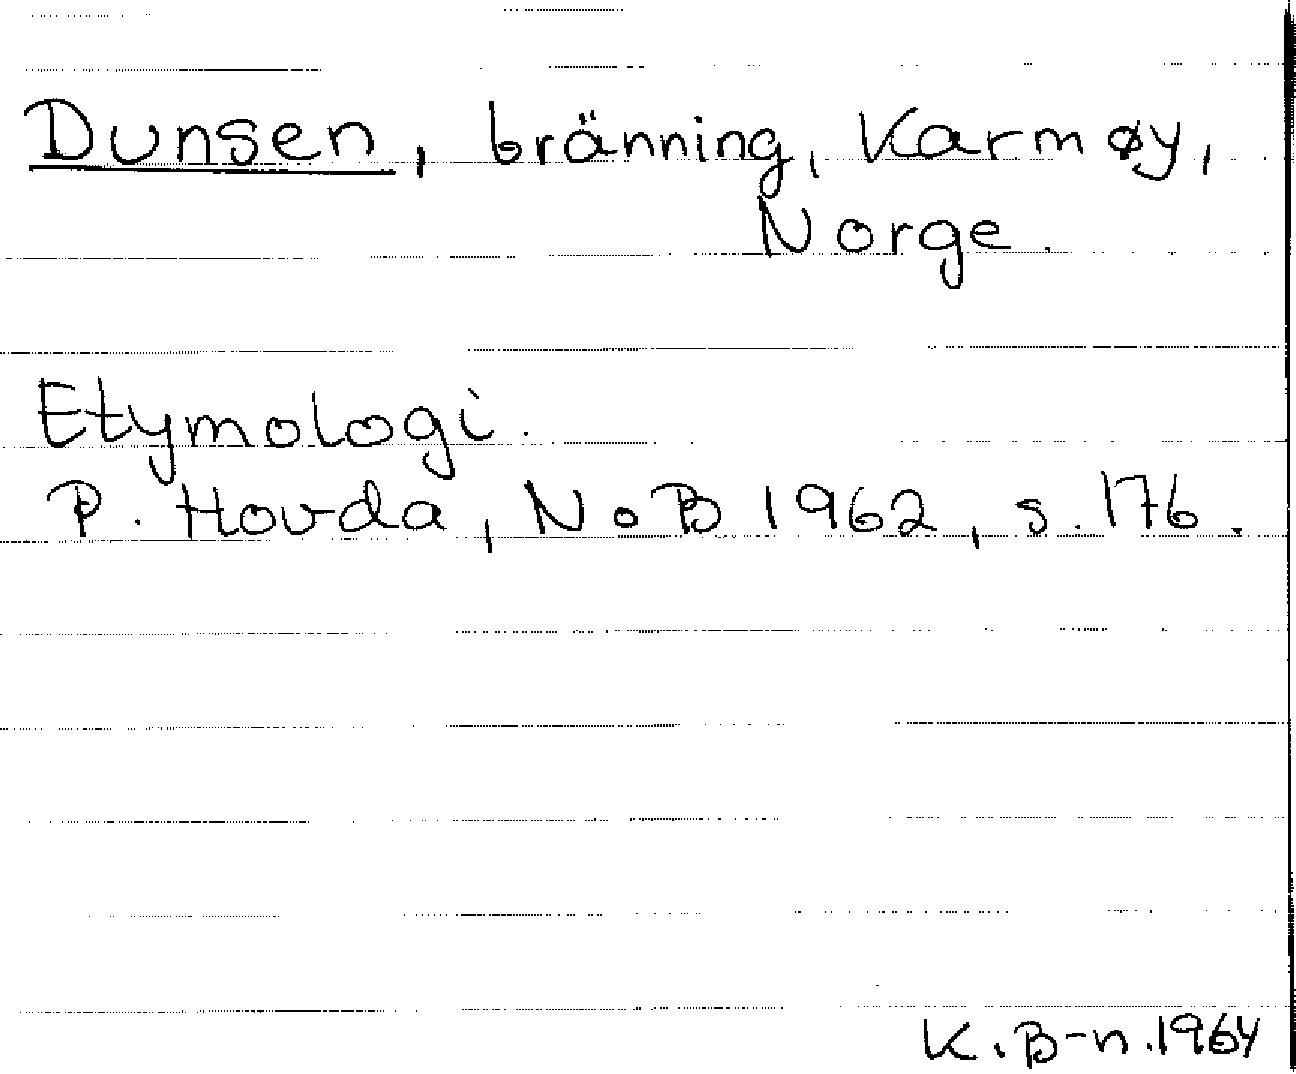 Dunsen, bränning, Karmøy,
Norge.
Etymologi.
P. Hovda, NoB 1962, s. 176.
K. B-n. 1964